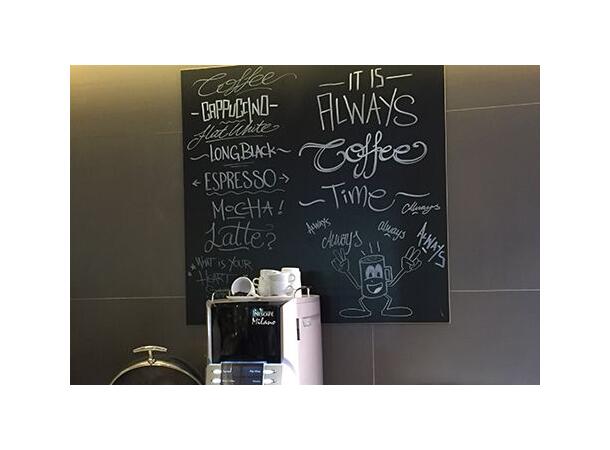 Coffee
CAPPUCINO
flat White
LONG BLACK
ESPRESSO
MOCHA!
Latte?
WHAT IS YOUR
HEART
IT IS
ALWAYS
Coffee
Time
Always
ALWAYS
Always
always
ALWAYS
NESCAFÉ
Milano